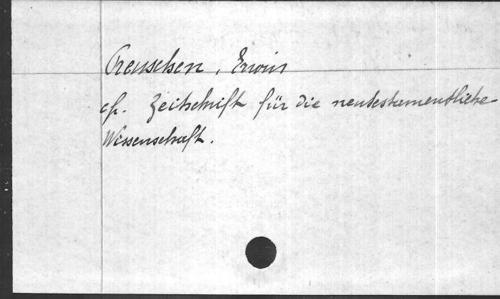 Preuschen, Erwin
cf. Zeitschrift für die neutestamentliche
Wissenschaft.